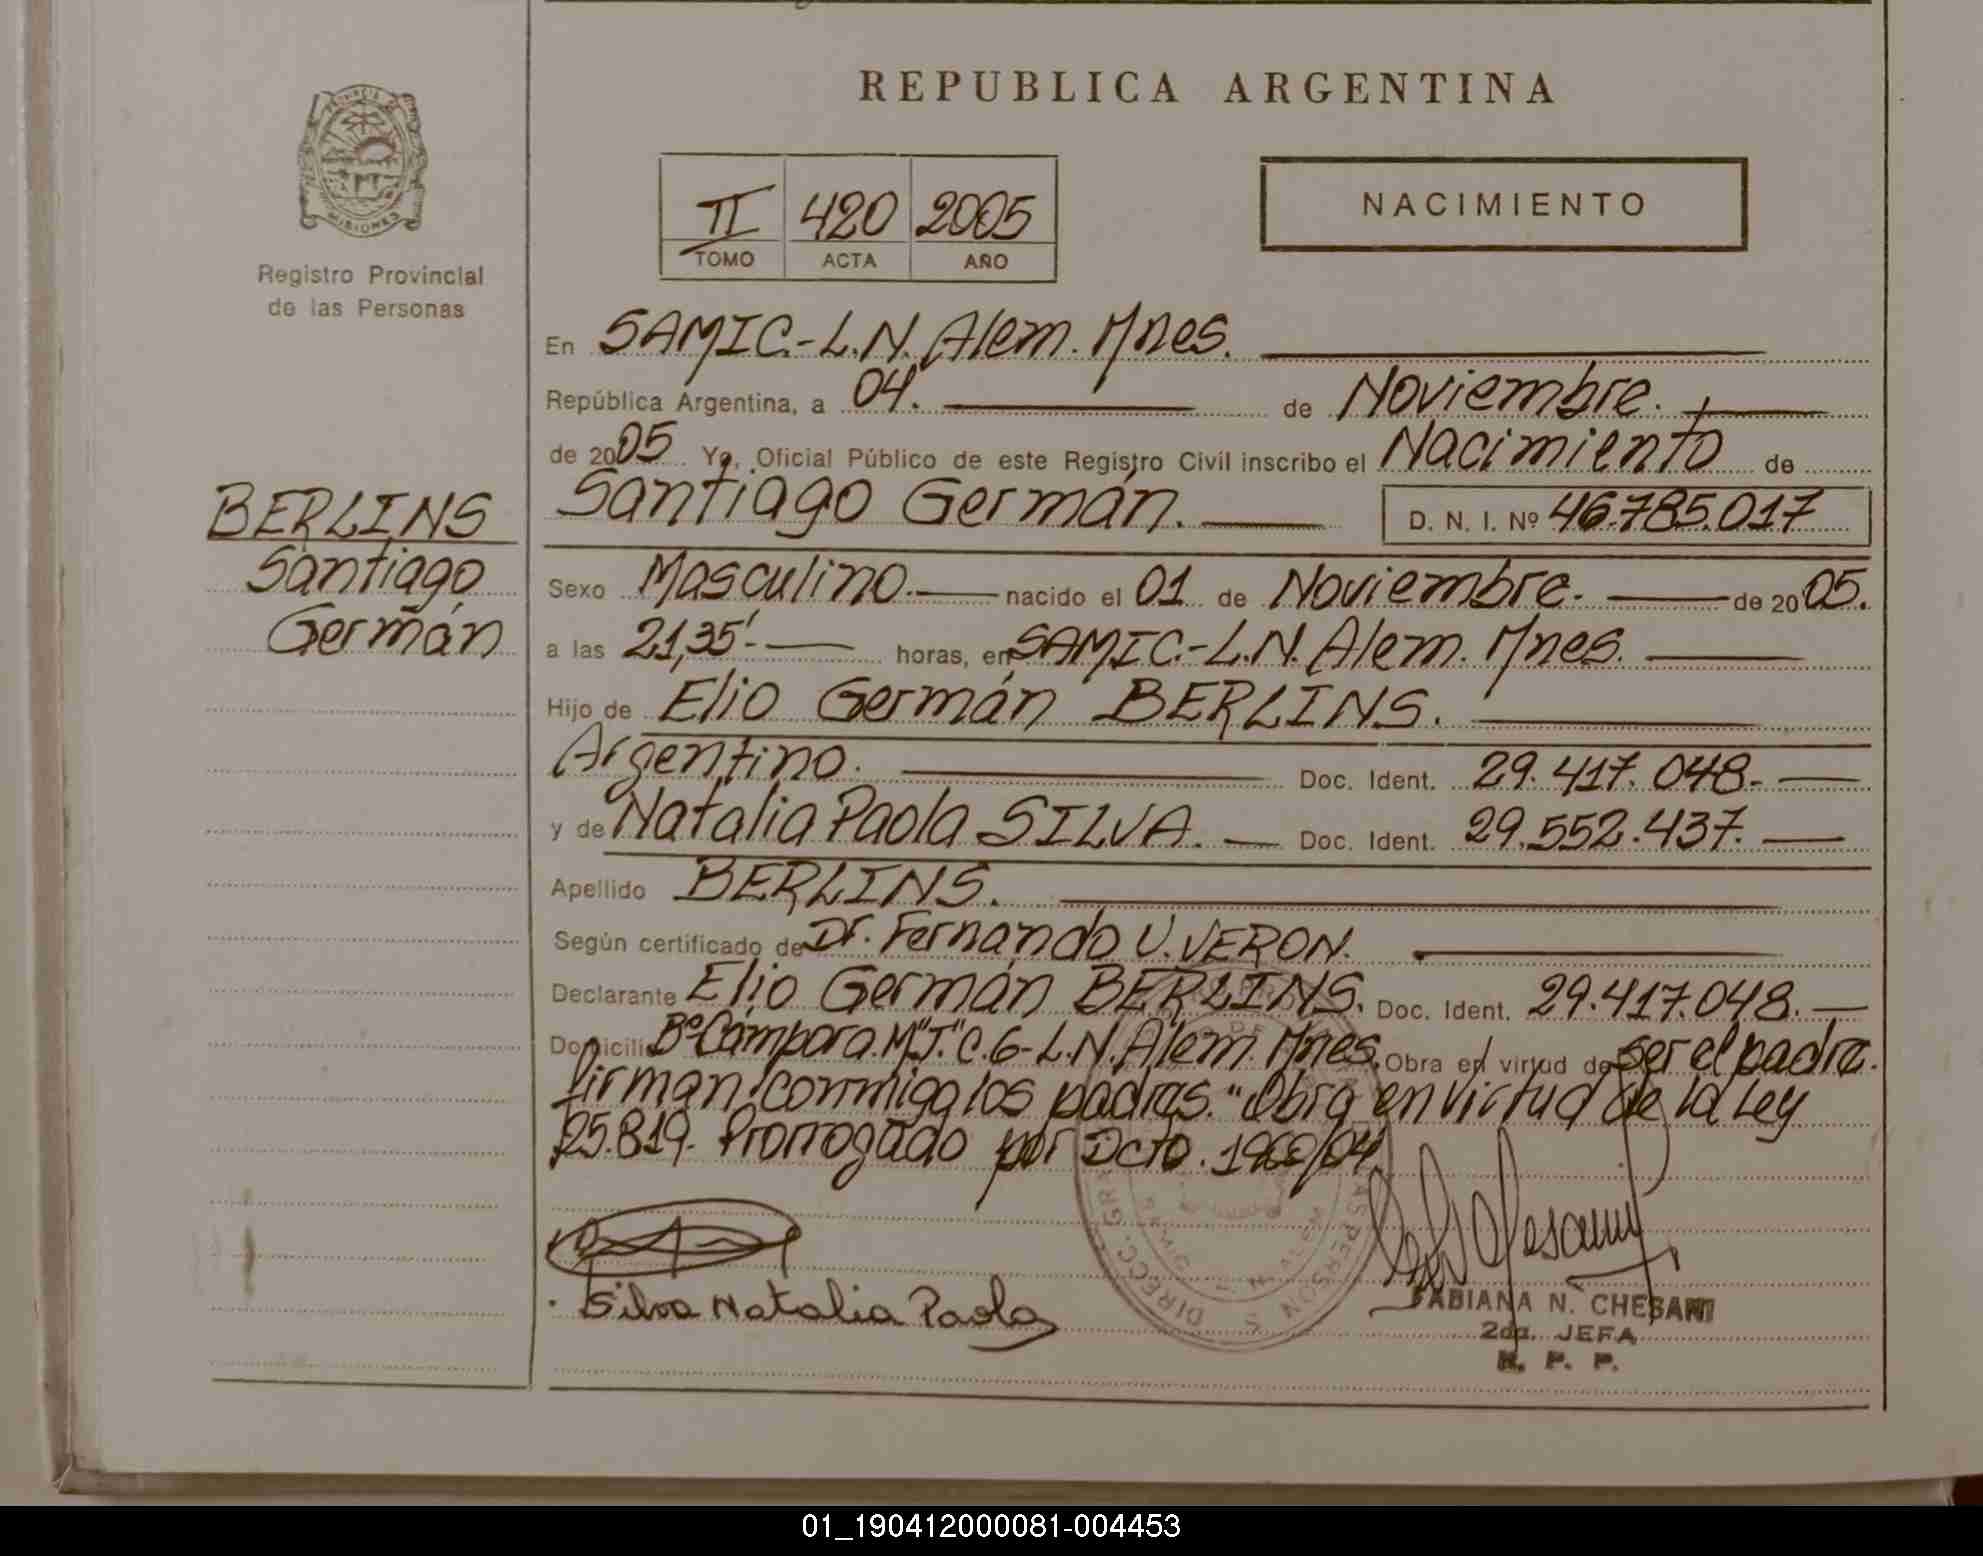 REPUBLICA ARGENTINA
PROVINCIA DE
MISIONES
Registro Provincial
de las Personas
II 420 2005
TOMO ACTA AÑO
NACIMIENTO
En SAMIC.-L.N. Alem. Mnes.
República Argentina, a 04. de Noviembre.
de 2005 Yo, Oficial Público de este Registro Civil inscribo el Nacimiento de
BERLINS
Santiago
Germán
Santiago Germán. D. N. I. Nº 46.785.017
Sexo Masculino. nacido el 01 de Noviembre. de 2005.
a las 21,35'. horas, en SAMIC.-L.N. Alem. Mnes.
Hijo de Elio Germán BERLINS.
Argentino. Doc. Ident. 29.417.048.
y de Natalia Paola SILVA. Doc. Ident. 29.552.437.
Apellido BERLINS.
Según certificado de Dr. Fernando U. VERON.
Declarante Elio Germán BERLINS. Doc. Ident. 29.417.048.
Domicilio Bº Cámpora. M"J" C. 6-L.N. Alem. Mnes. Obra en virtud de ser el padre.
firman conmigo los padres. "Obra en virtud de la Ley
25.819. Prorrogado por Dcto. 1960/04
Silva Natalia Paola
FABIANA N. CHESANI
2da. JEFA
R. P. P.
01_190412000081-004453